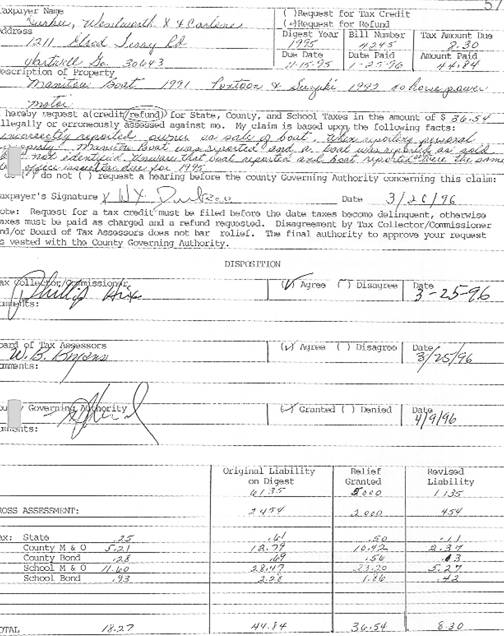 57
Taxpayer Name
( ) Request for Tax Credit
Wentworth X & Carlene
( ) Request for Refund
Address
Digest Year Bill Number Tax Amount Due
1211 Rd
1995 4245 8.30
Hartwell Ga. 30643
Due Date Date Paid Amount Paid
11-15-95 1-25-96 44.84
Description of Property
Manitou Boat 1991 Pontoon & Suzuki 1992 40 horse power
motor
I hereby request a(credit/refund) for State, County, and School Taxes in the amount of $ 36.54
illegally or erroneously assessed against me. My claim is based upon the following facts:
incorrectly reported on sale of boat. When reporting personal
property Manitou Boat was reported and a boat was reported as sold
not identified. Unaware that boat reported and boat reported were the same
for 1995
I do not ( ) request a hearing before the county Governing Authority concerning this claim:
Taxpayer's Signature Date 3/20/96
Note: Request for a tax credit must be filed before the date taxes become delinquent, otherwise
taxes must be paid as charged and a refund requested. Disagreement by Tax Collector/Commissioner
and/or Board of Tax Assessors does not bar relief. The final authority to approve your request
is vested with the County Governing Authority.
DISPOSITION
Tax Collector/Commissioner (✓) Agree ( ) Disagree Date
Phillip 3-25-96
Comments:
Board of Tax Assessors (✓) Agree ( ) Disagree Date
W. B. 3/25/96
Comments:
County Governing Authority (✓) Granted ( ) Denied Date
4/9/96
Comments:
Original Liability Relief Revised
on Digest Granted Liability
6135 5000 1135
GROSS ASSESSMENT: 2454 2000 454
Tax: State .25 .61 .50 .11
County M & O 5.21 12.79 10.42 2.37
County Bond .28 .69 .56 .13
School M & O 11.60 28.47 23.20 5.27
School Bond .93 2.28 1.86 .42
TOTAL 18.27 44.84 36.54 8.30